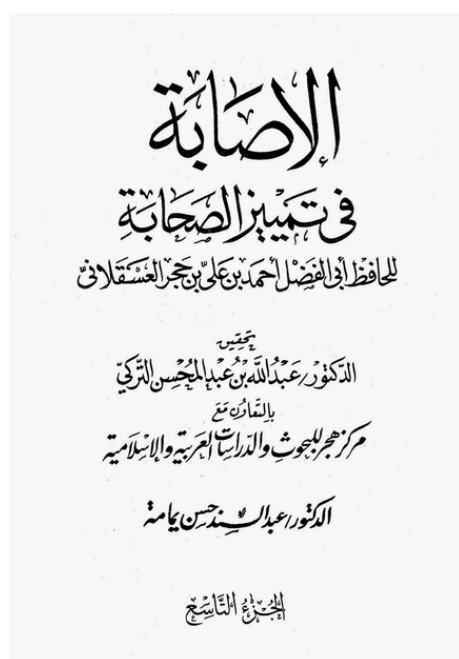 الإصابة
في تمييز الصحابة
للحافظ أبي الفضل أحمد بن علي بن حجر العسقلاني
تحقيق
الدكتور/ عبد الله بن عبد المحسن التركي
بالتعاون مع
مركز هجر للبحوث والدراسات العربية والإسلامية
الدكتور/ عبد السند حسن يمامة
الجزء التاسع